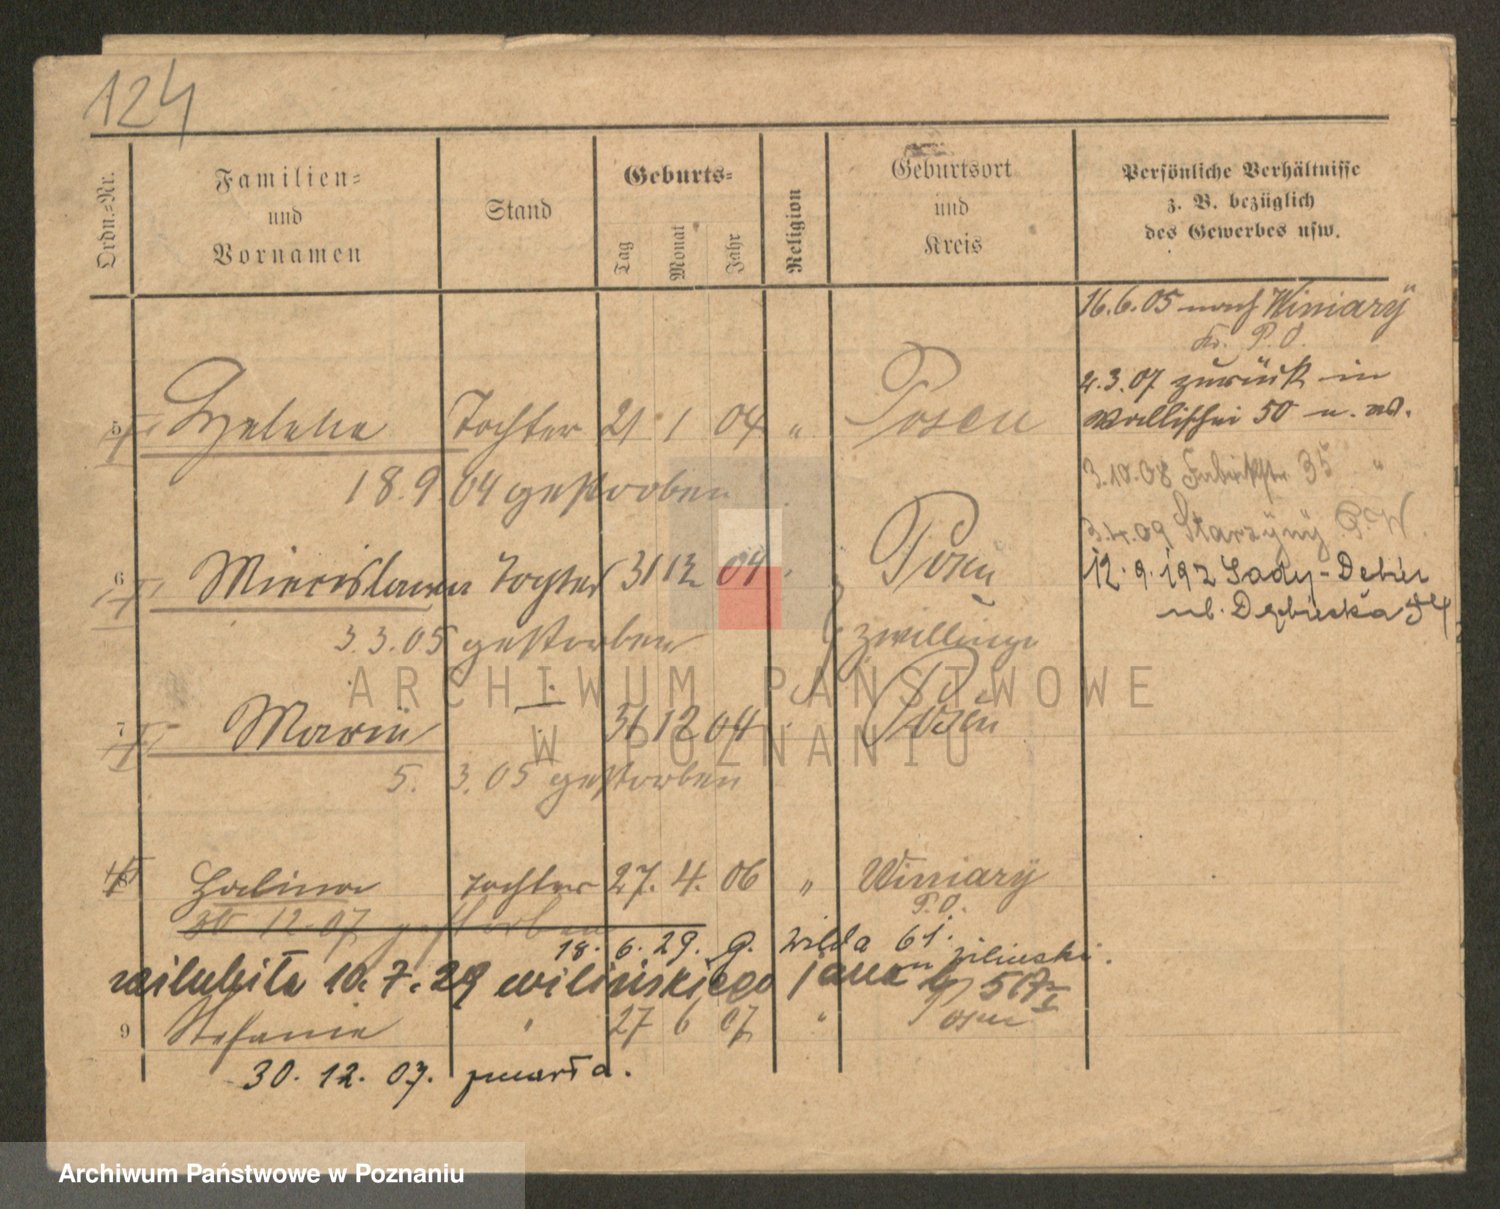 124
Ordn.-Nr.
Familien-
und
Vornamen
Stand
Geburts-
Tag
Monat
Jahr
Religion
Geburtsort
und
Kreis
Persönliche Verhältnisse
z. B. bezüglich
des Gewerbes usw.
16.6.05 nach Winiary
Kr. P.O.
2.3.07 zurück in
Wallischei 50 u. w.
5 Helene Tochter 21 1 04 " Posen
3.10.08 Fabrikstr 35 "
18.9 04 gestorben
3.4.09 Starzyny P.W.
6 Miecislawa Tochter 31 12 04 " Posen
12.9.192 Sady-
ul. Dębieska
3.3.05 gestorben
Zwillinge
7 Marie 31 12 04 " Posen
5. 3.05 gestorben
Halina Tochter 27. 4. 06 " Winiary
P.O.
30 12.07 gestorben
18. 6. 29. g. Wilda 61. Zilinski.
10. 7. 29 Wilińskiego
9 Stefanie " 27 6 07 " Posen
30. 12. 07. zmarła.
ARCHIWUM PAŃSTWOWE
W POZNANIU
Archiwum Państwowe w Poznaniu